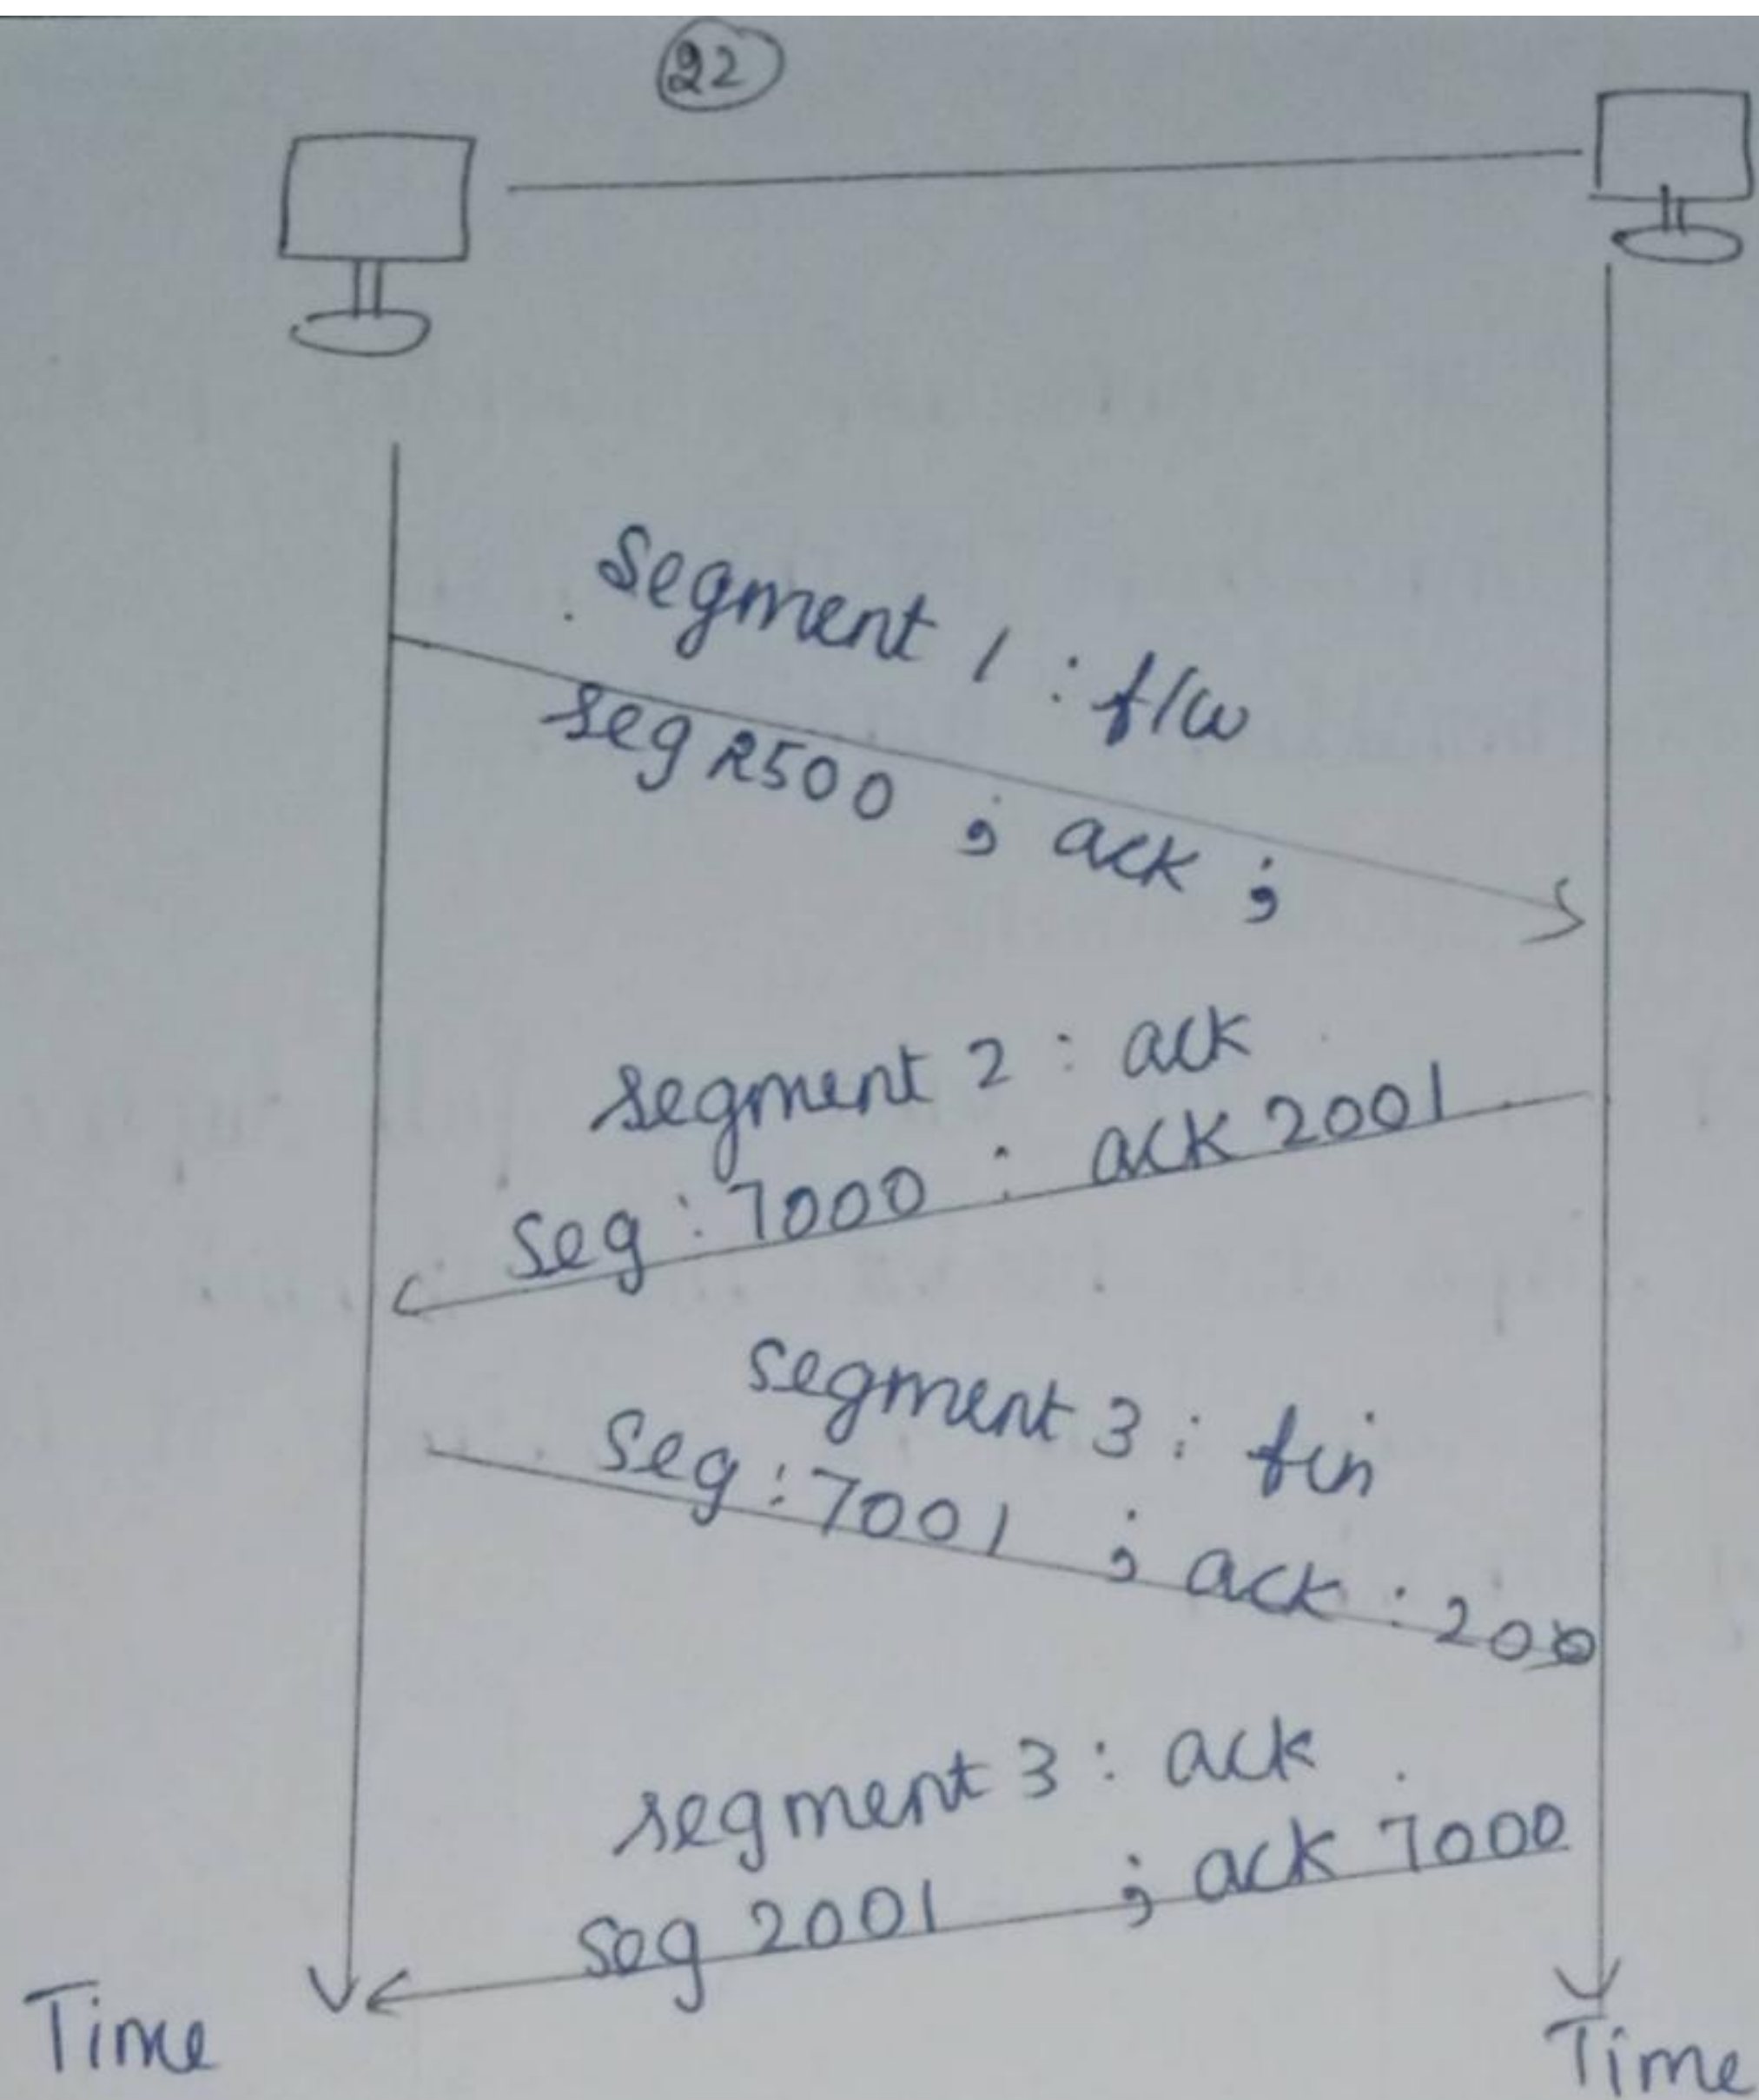 22
segment 1 : f/w
seg 2500 ; ack ;
segment 2 : ack
seg : 7000 : ack 2001
segment 3 : fin
seg : 7001 ; ack : 200
segment 3 : ack
seg 2001 ; ack 7000
Time
Time